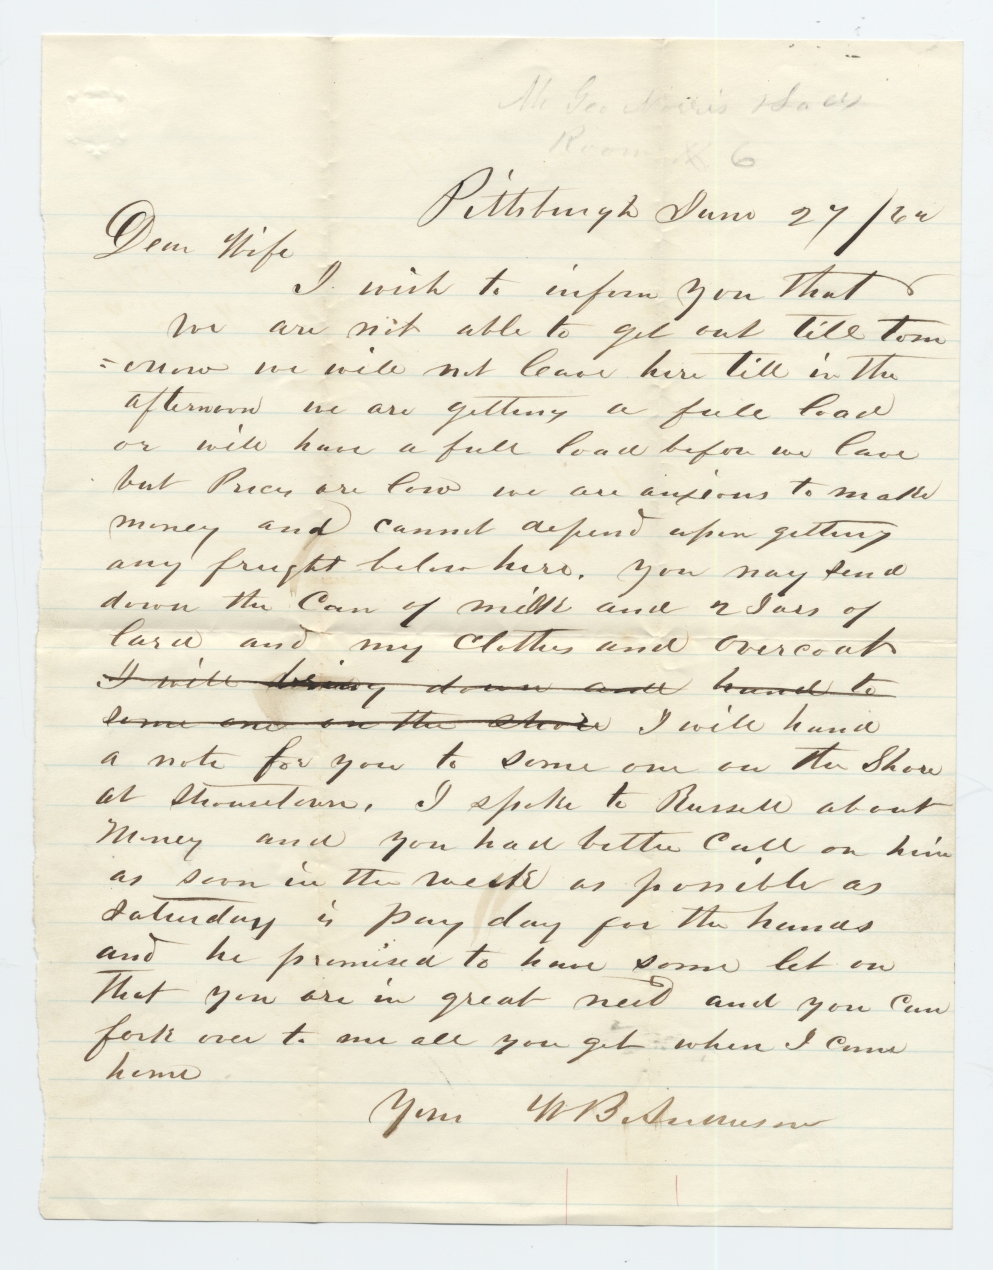 Mr Geo Norris
Room No 6
Pittsburgh June 27 /
Dear Wife
I wish to inform you that
we are not able to get out till tom
=orrow we will not leave here till in the
afternoon we are getting a full load
or will have a full load before we lave
but Prices are low we are anxious to make
money and cannot depend upon getting
any freight below here. You may send
down the Can of milk and 2 Jars of
lard and my Clothes and Overcoat
I will bring down and hand to
some one on the shore I will hand
a note for you to some one on the Shore
at Shousetown. I spoke to Russell about
Money and you had better Call on him
as soon in the week as possible as
Saturday is pay day for the hands
and he promised to have some let on
that you are in great need and you can
fork over to me all you get when I come
home
Yours W B Anderson